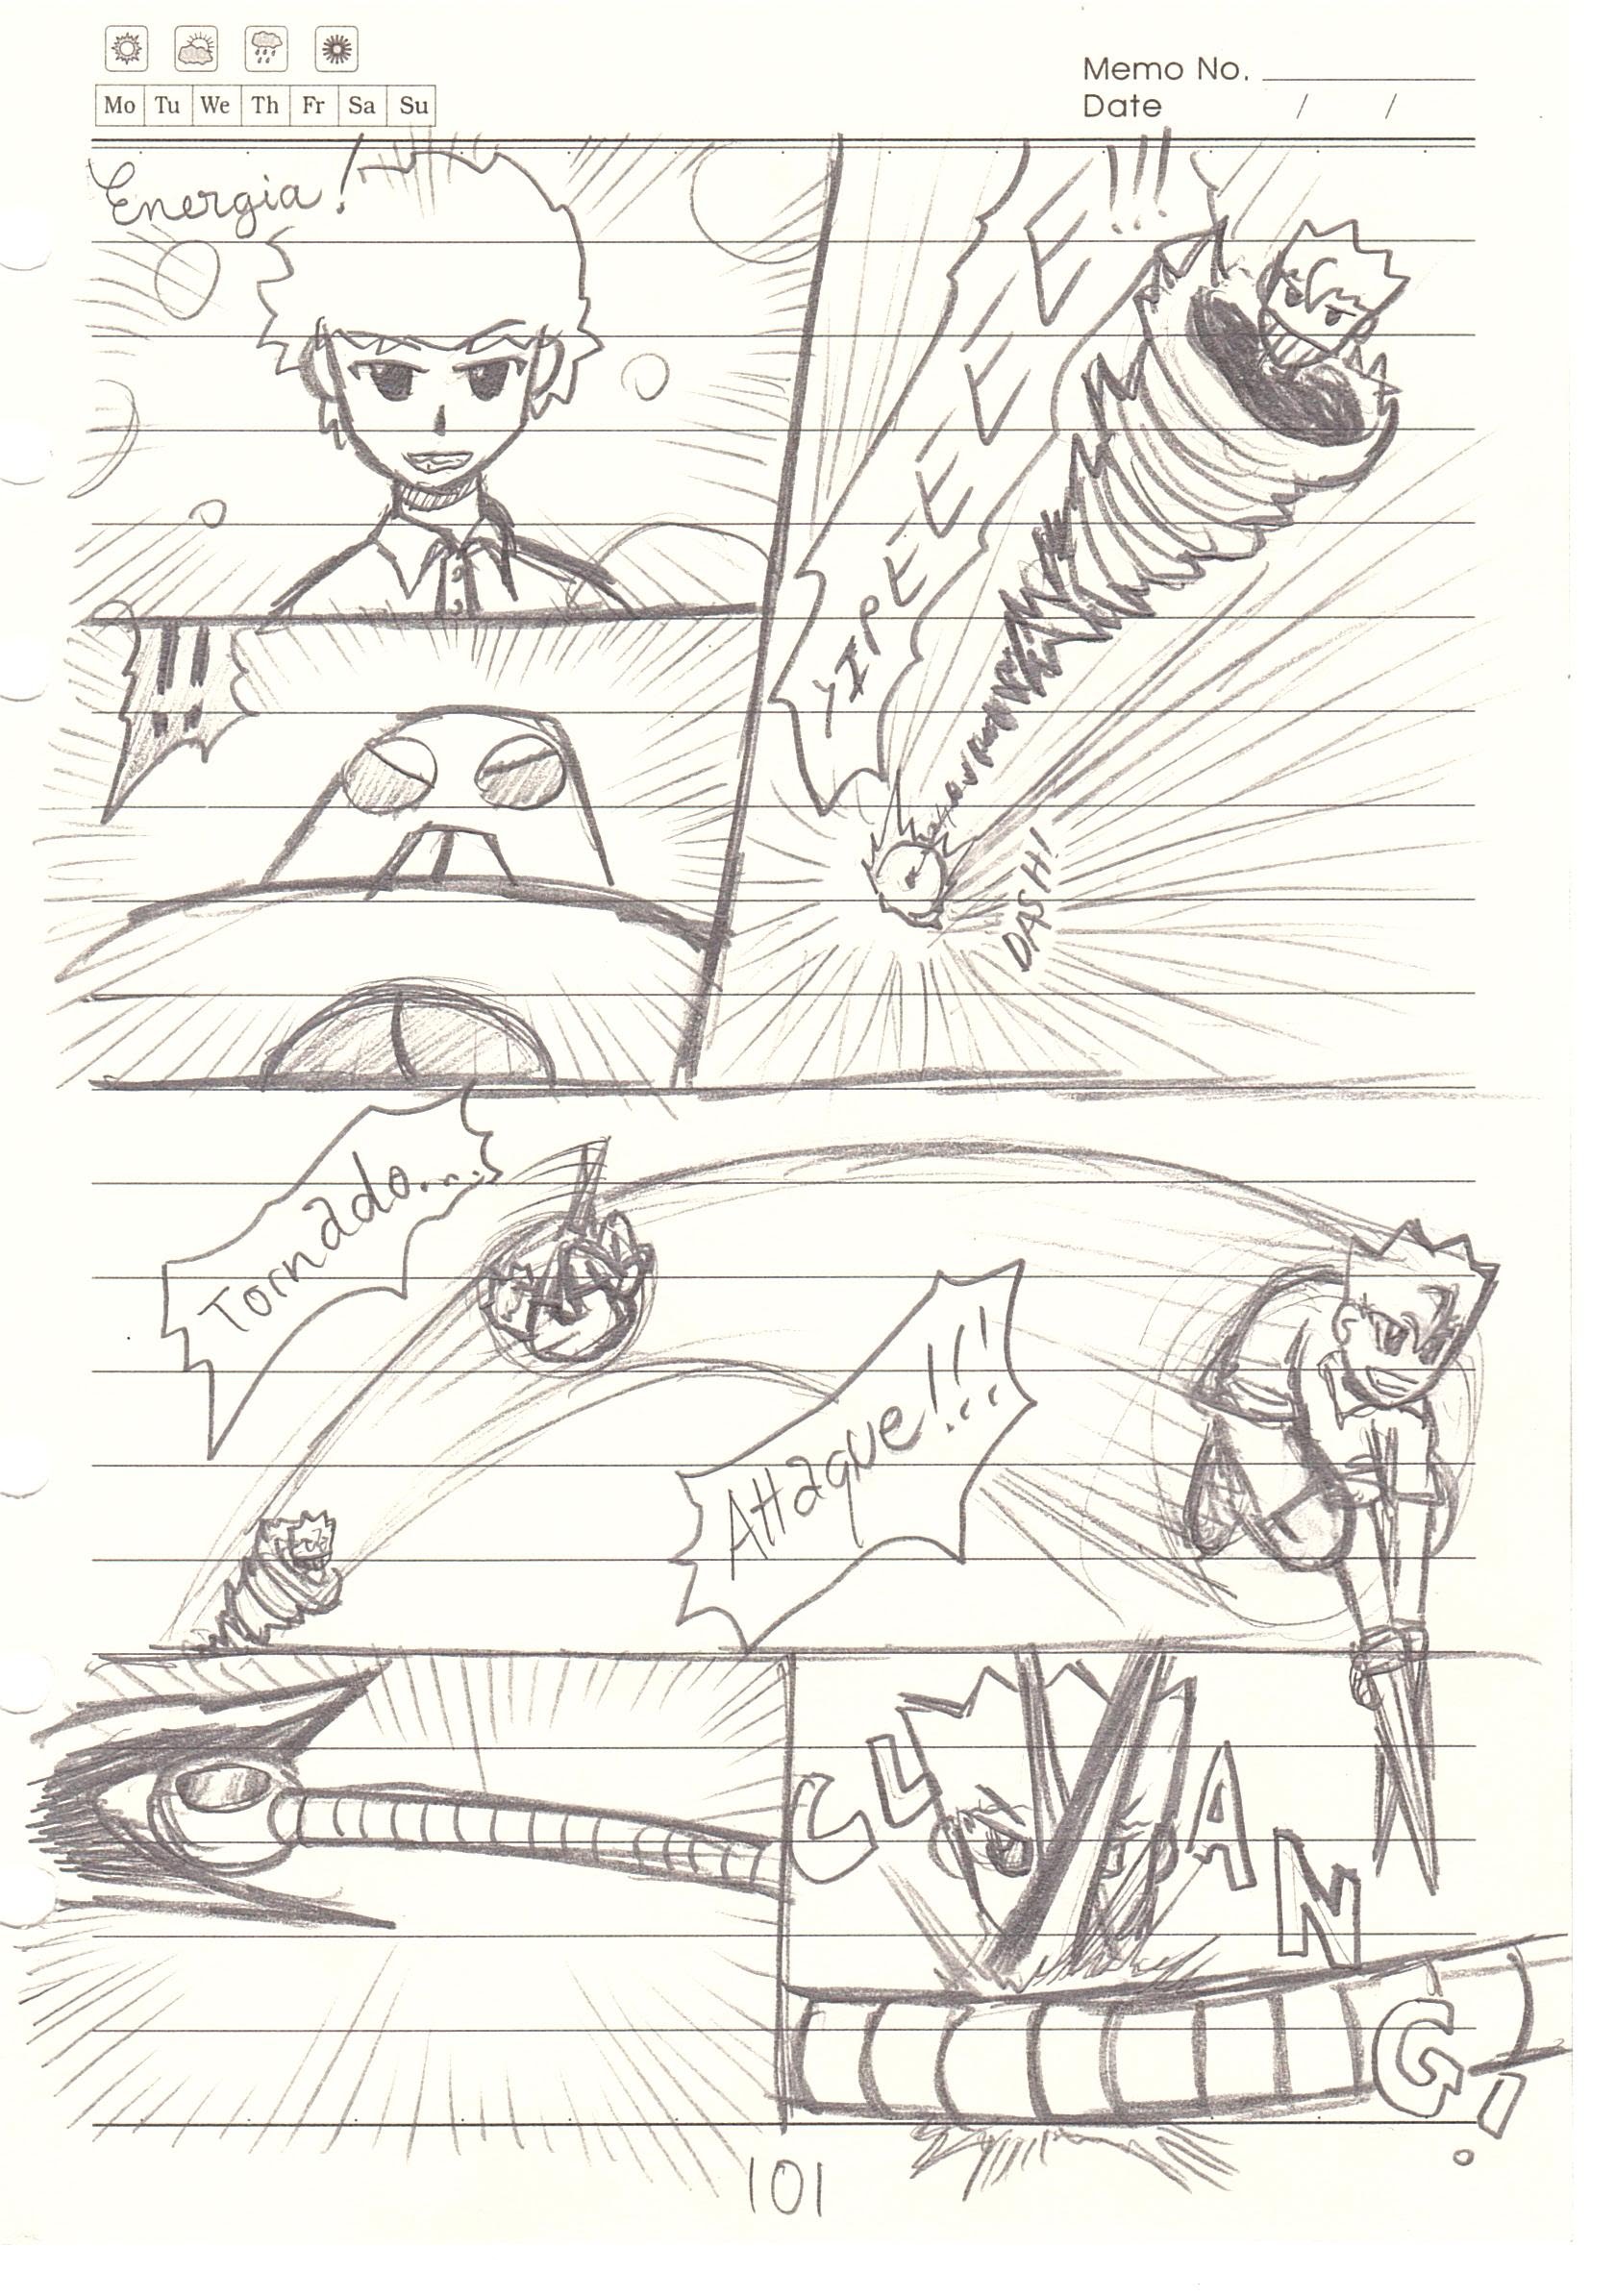 Memo No.
Mo Tu We Th Fr Sa Su
Date / /
Energia!
YIPEEEEE!!!
!!
DASH!
Tornado...
Attaque!!!
CLANG!
101